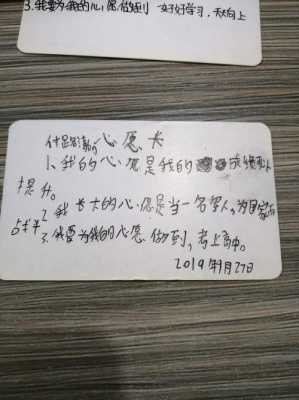 3.我要为我的心愿做到 好好学习,天天向上
心愿卡
1.我的心愿是我的成绩可以
提升。
2.我长大的心愿是当一名军人,为国家而
战斗
3.我要为我的心愿做到,考上高中。
2019年9月27日